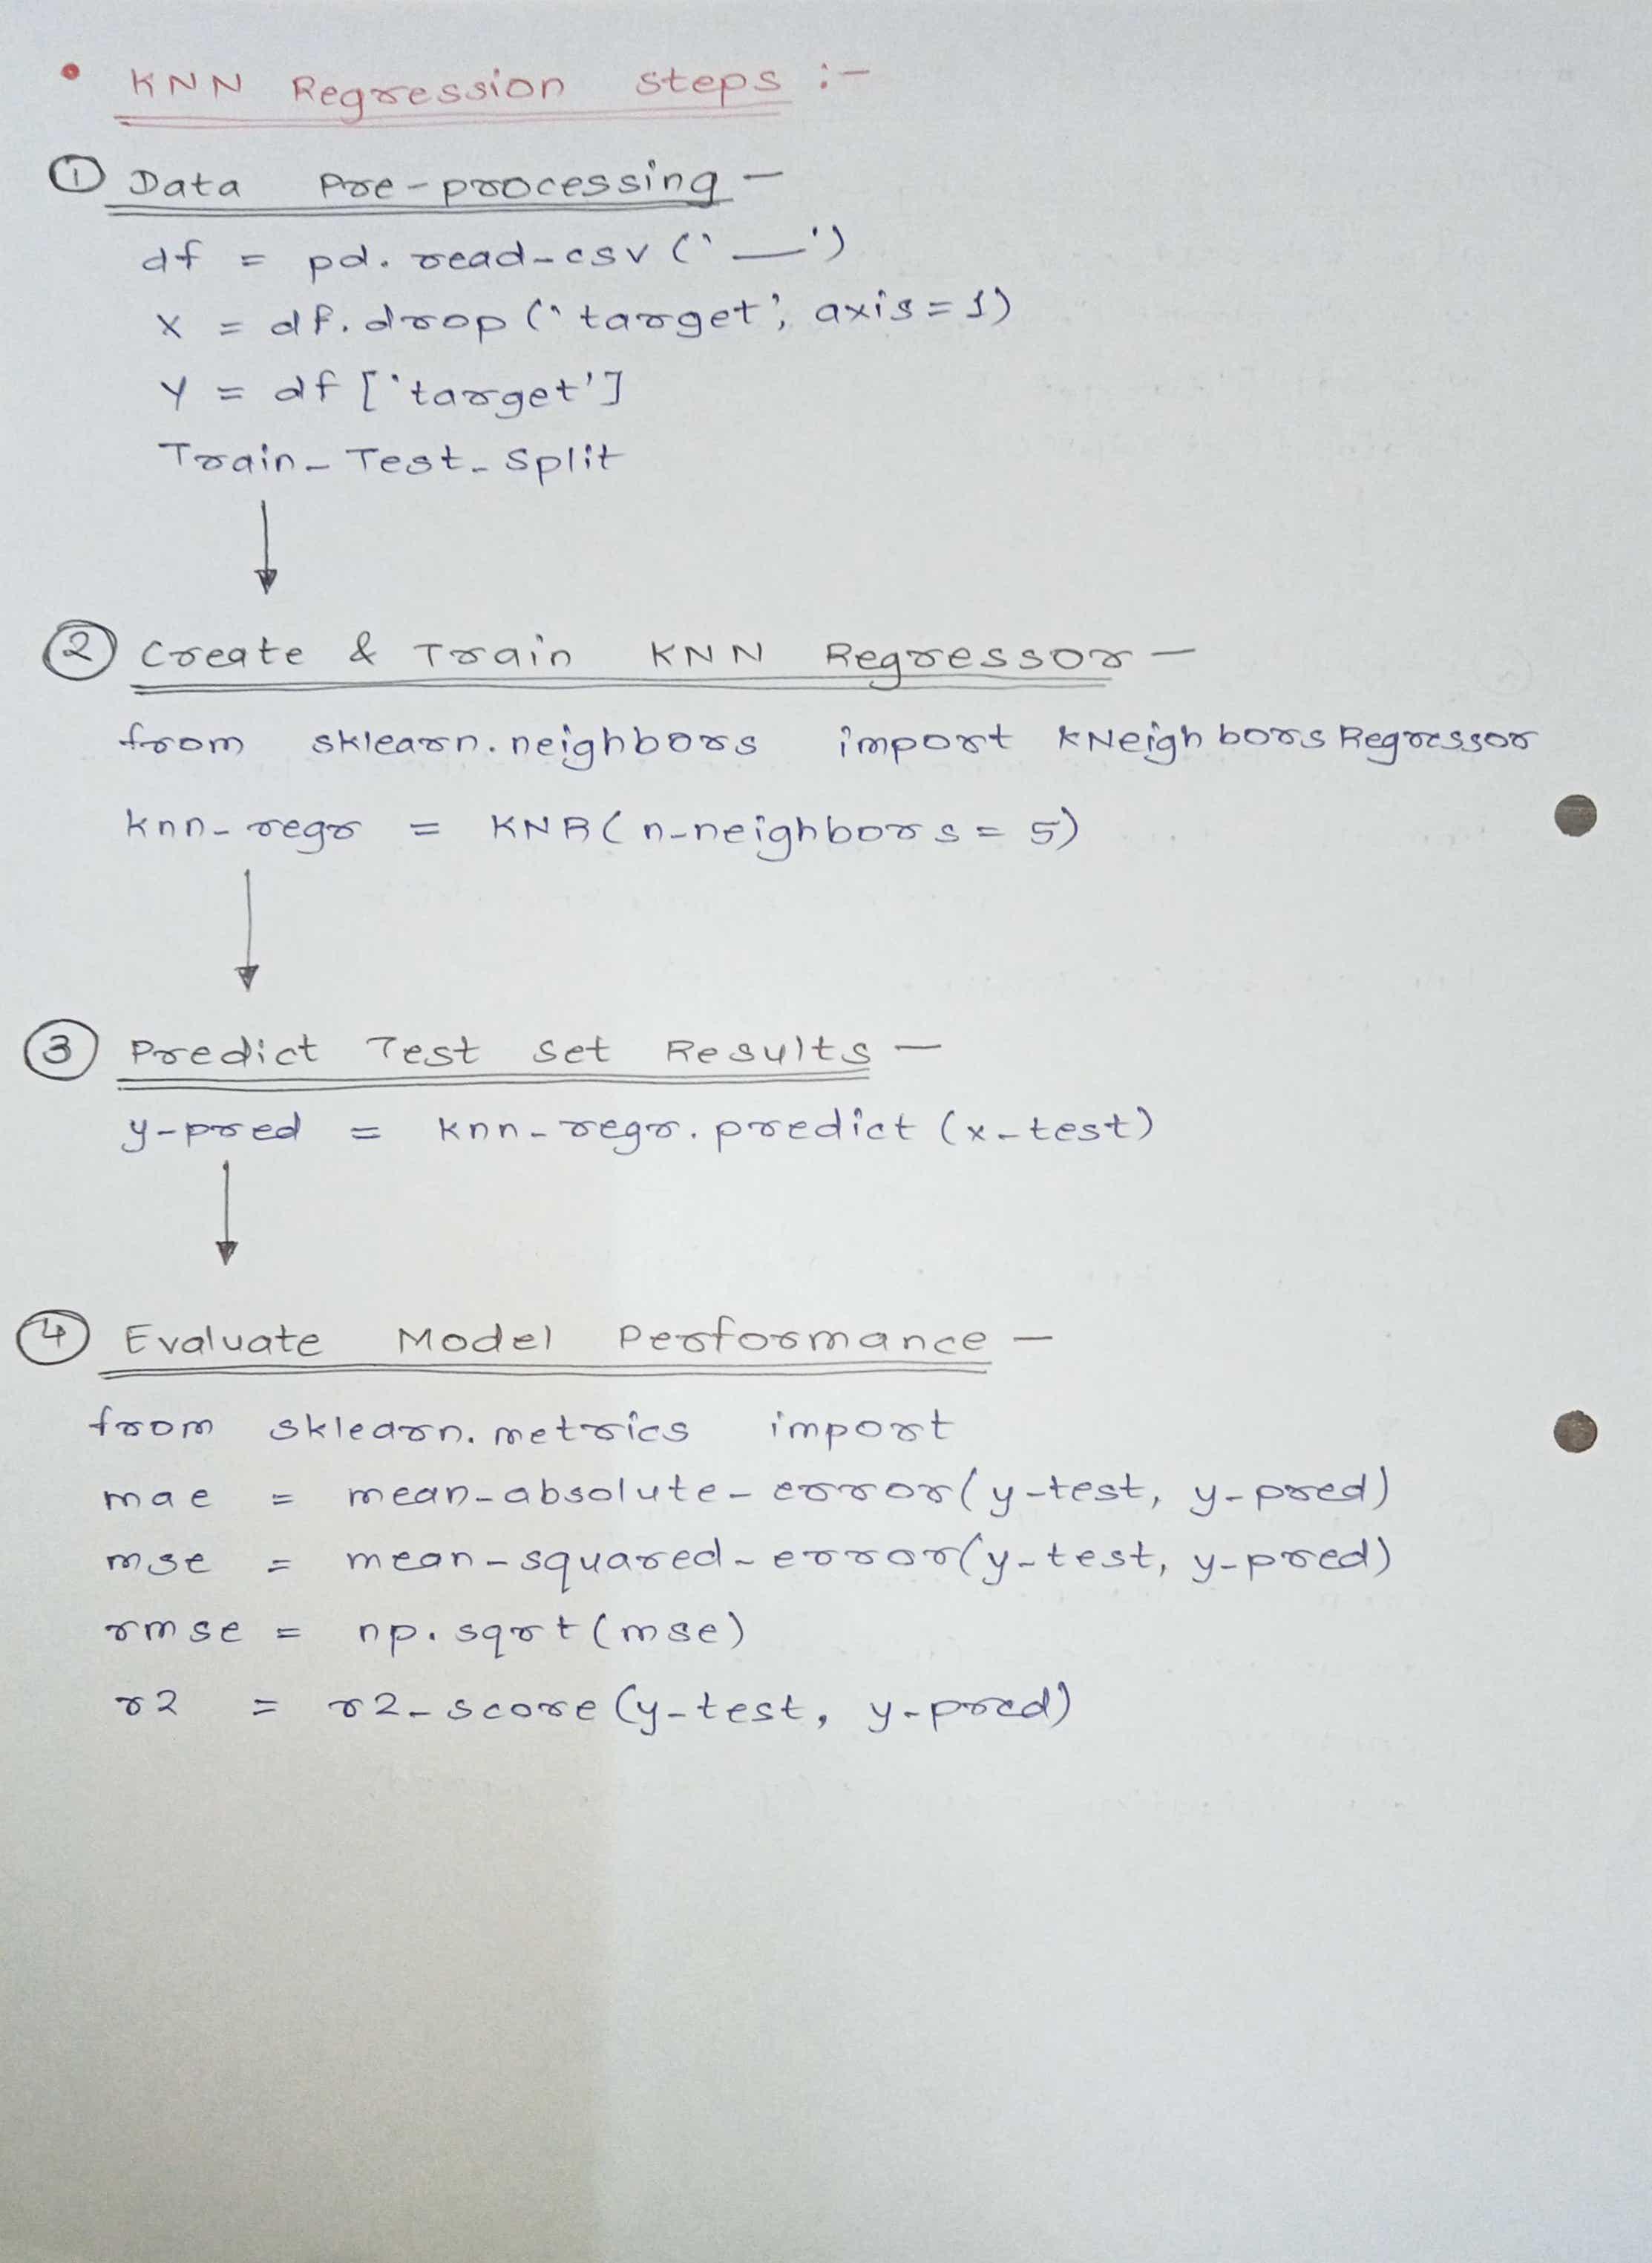 • KNN Regression steps :-
① Data Pre-processing -
df = pd.read_csv('__')
X = df.drop('target', axis=1)
Y = df['target']
Train_Test_Split
② Create & Train KNN Regressor -
from sklearn.neighbors import KNeighborsRegressor
knn_regr = KNR(n_neighbors=5)
③ Predict Test set Results -
y_pred = knn_regr.predict(x_test)
④ Evaluate Model Performance -
from sklearn.metrics import
mae = mean_absolute_error(y_test, y_pred)
mse = mean_squared_error(y_test, y_pred)
rmse = np.sqrt(mse)
r2 = r2_score(y_test, y_pred)